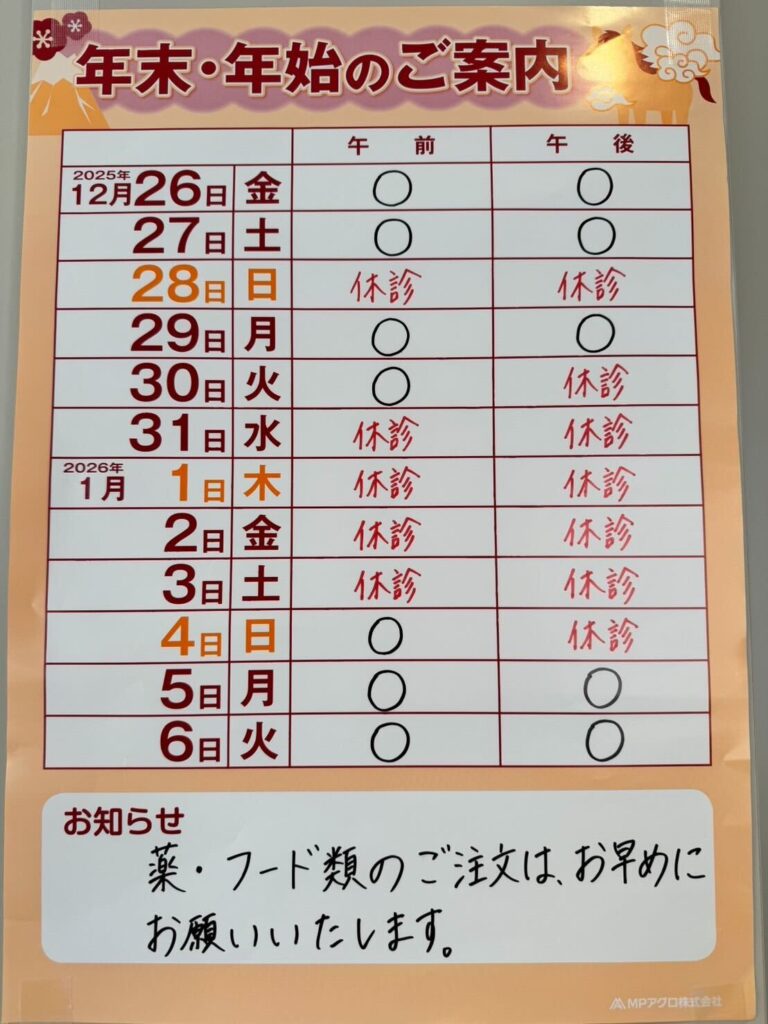 年末・年始のご案内
午前 午後
2025年
12月26日 金 ○ ○
27日 土 ○ ○
28日 日 休診 休診
29日 月 ○ ○
30日 火 ○ 休診
31日 水 休診 休診
2026年
1月 1日 木 休診 休診
2日 金 休診 休診
3日 土 休診 休診
4日 日 ○ 休診
5日 月 ○ ○
6日 火 ○ ○
お知らせ
薬・フード類のご注文は、お早めに
お願いいたします。
MPアグロ株式会社